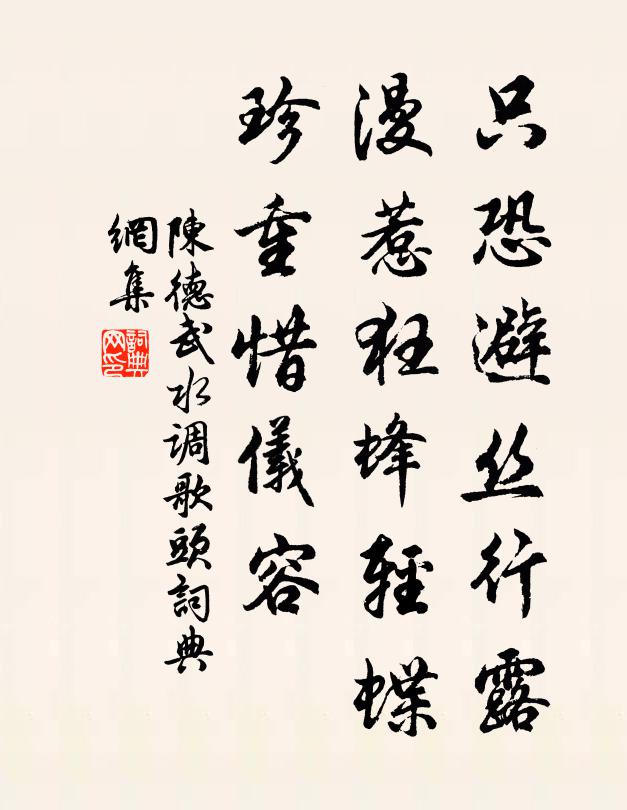 只恐避丝行露
漫惹狂蜂輕蝶
珍重惜儀容
陳德武水调歌頭詞典
網集
詞典
网印